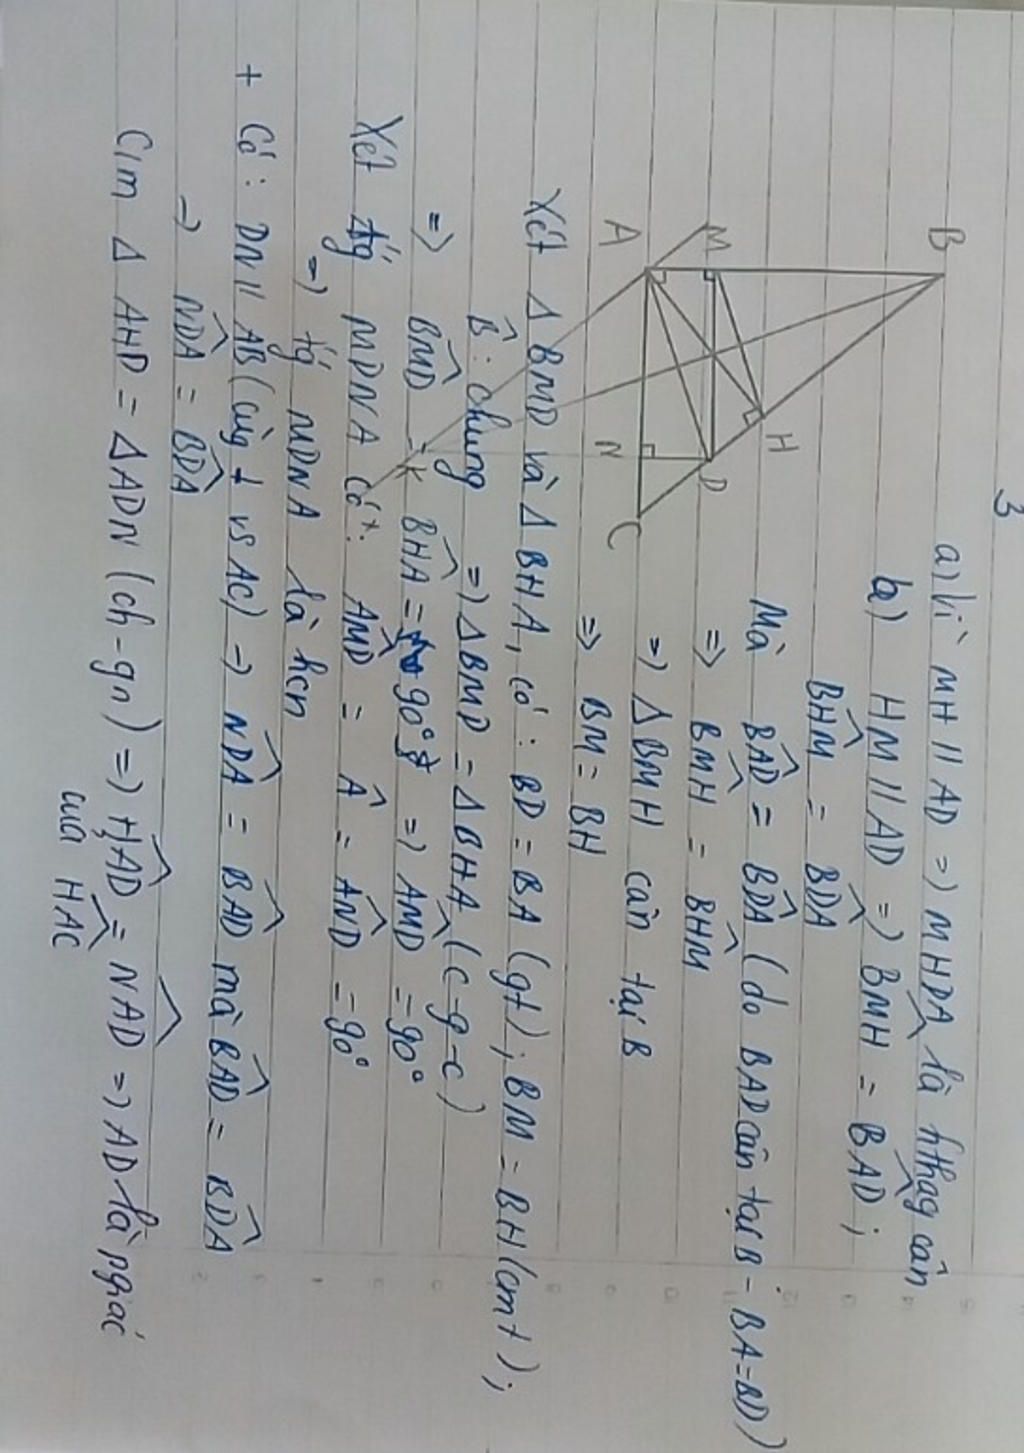 3
a) Vì MH // AD => MHDA là hthag cân
b) HM // AD => BMH = BAD ;
BHM = BDA
Mà BAD = BDA (do BAD cân tại B - BA = BD)
=> BMH = BHM
=> Δ BMH cân tại B
=> BM = BH
B
M
A
H
D
N
C
K
Xét Δ BMD và Δ BHA, có : BD = BA (gt) ; BM = BH (cmt) ;
B : chung => Δ BMD = Δ BHA (c-g-c)
=> BMD = BHA = 90° => AMD = 90°
Xét tg MDNA có : AMD = A = AND = 90°
=> tg MDNA là hcn
+ Có : DN // AB (cùg ⊥ vs AC) => NDA = BAD mà BAD = BDA
=> NDA = BDA
Cm Δ AHD = Δ ADN (ch-gn) => HAD = NAD => AD là pgiác
của HAC